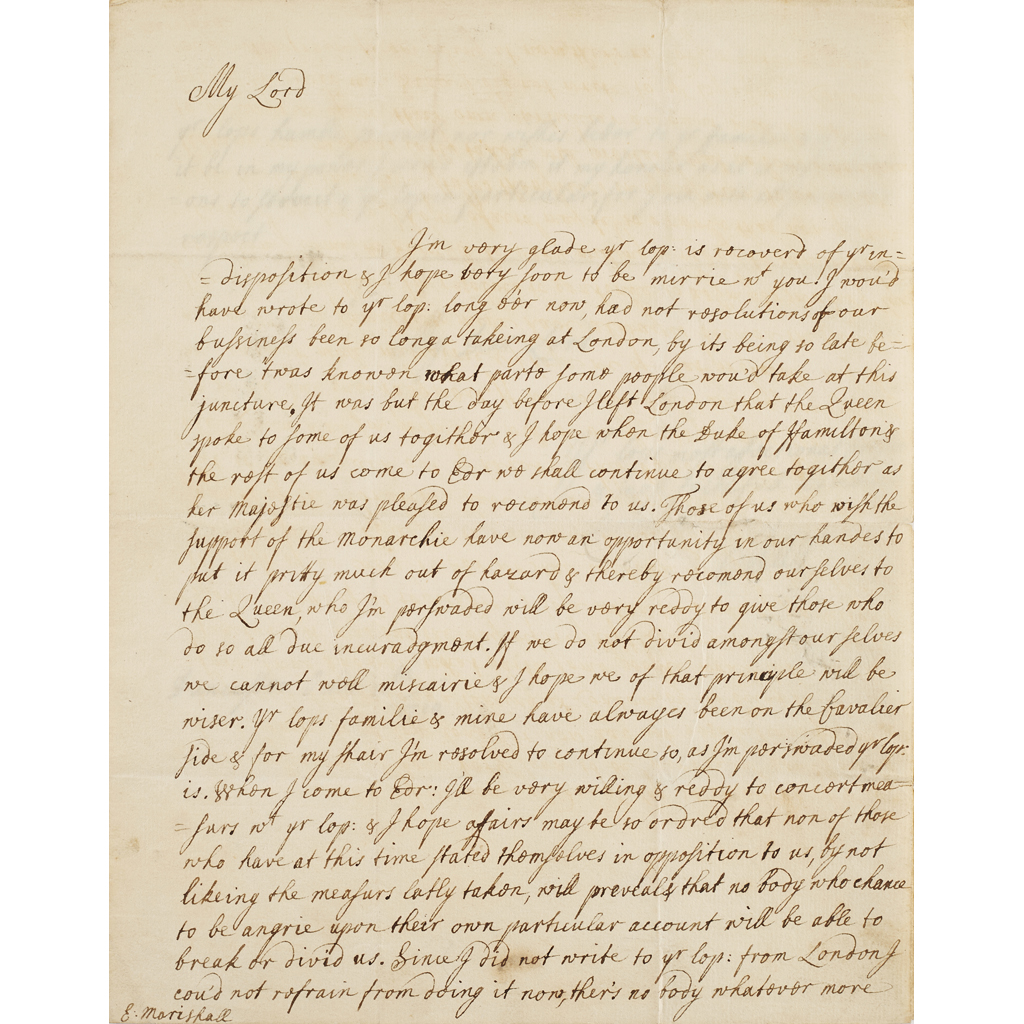 My Lord
I'm very glade yr lop: is recoverd of yr in=
=disposition & I hope very soon to be mirrie wt you. I wou'd
have wrote to yr lop: long e'er now, had not resolutions of our
bussiness been so long a takeing at London, by its being so late be=
=fore 'twas knowen what parte some people wou'd take at this
juncture. It was but the day before I left London that the Queen
spoke to some of us togither & I hope when the Duke of Hamilton &
the rest of us come to Edr we shall continue to agree togither as
her Majestie was pleased to recomend to us. Those of us who wish the
support of the Monarchie have now an opportunity in our handes to
put it pritty much out of hazard & thereby recomend ourselves to
the Queen, who I'm perswaded will be very reddy to give those who
do so all due incuradgment. If we do not divid amongst our selves
we cannot well miscairie & I hope we of that principle will be
wiser. Yr lops familie & mine have always been on the Cavalier
side & for my shair I'm resolved to continue so, as I'm perswaded yr lop:
is. When I come to Edr: I'll be very willing & reddy to concert mea=
=surs wt yr lop: & I hope afairs may be so ordred that non of those
who have at this time stated themselves in opposition to us, by not
likeing the measurs latly taken, will preveal & that no body who chance
to be angrie upon their own particular account will be able to
break or divid us. Since I did not write to yr lop: from London I
cou'd not refrain from doing it now, ther's no body whatever more
E. Marishall